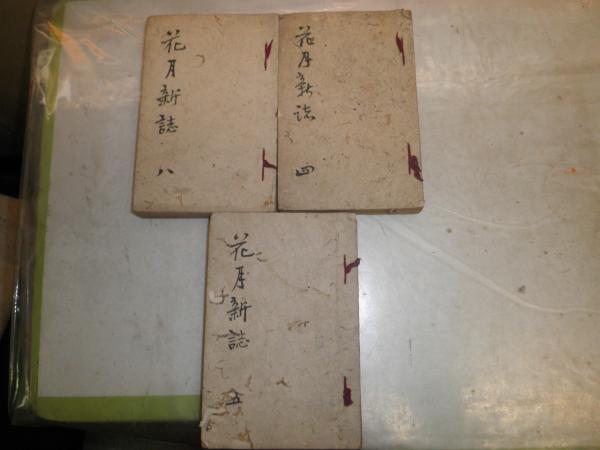 花月新誌 八
花月新誌 四
花月新誌 五